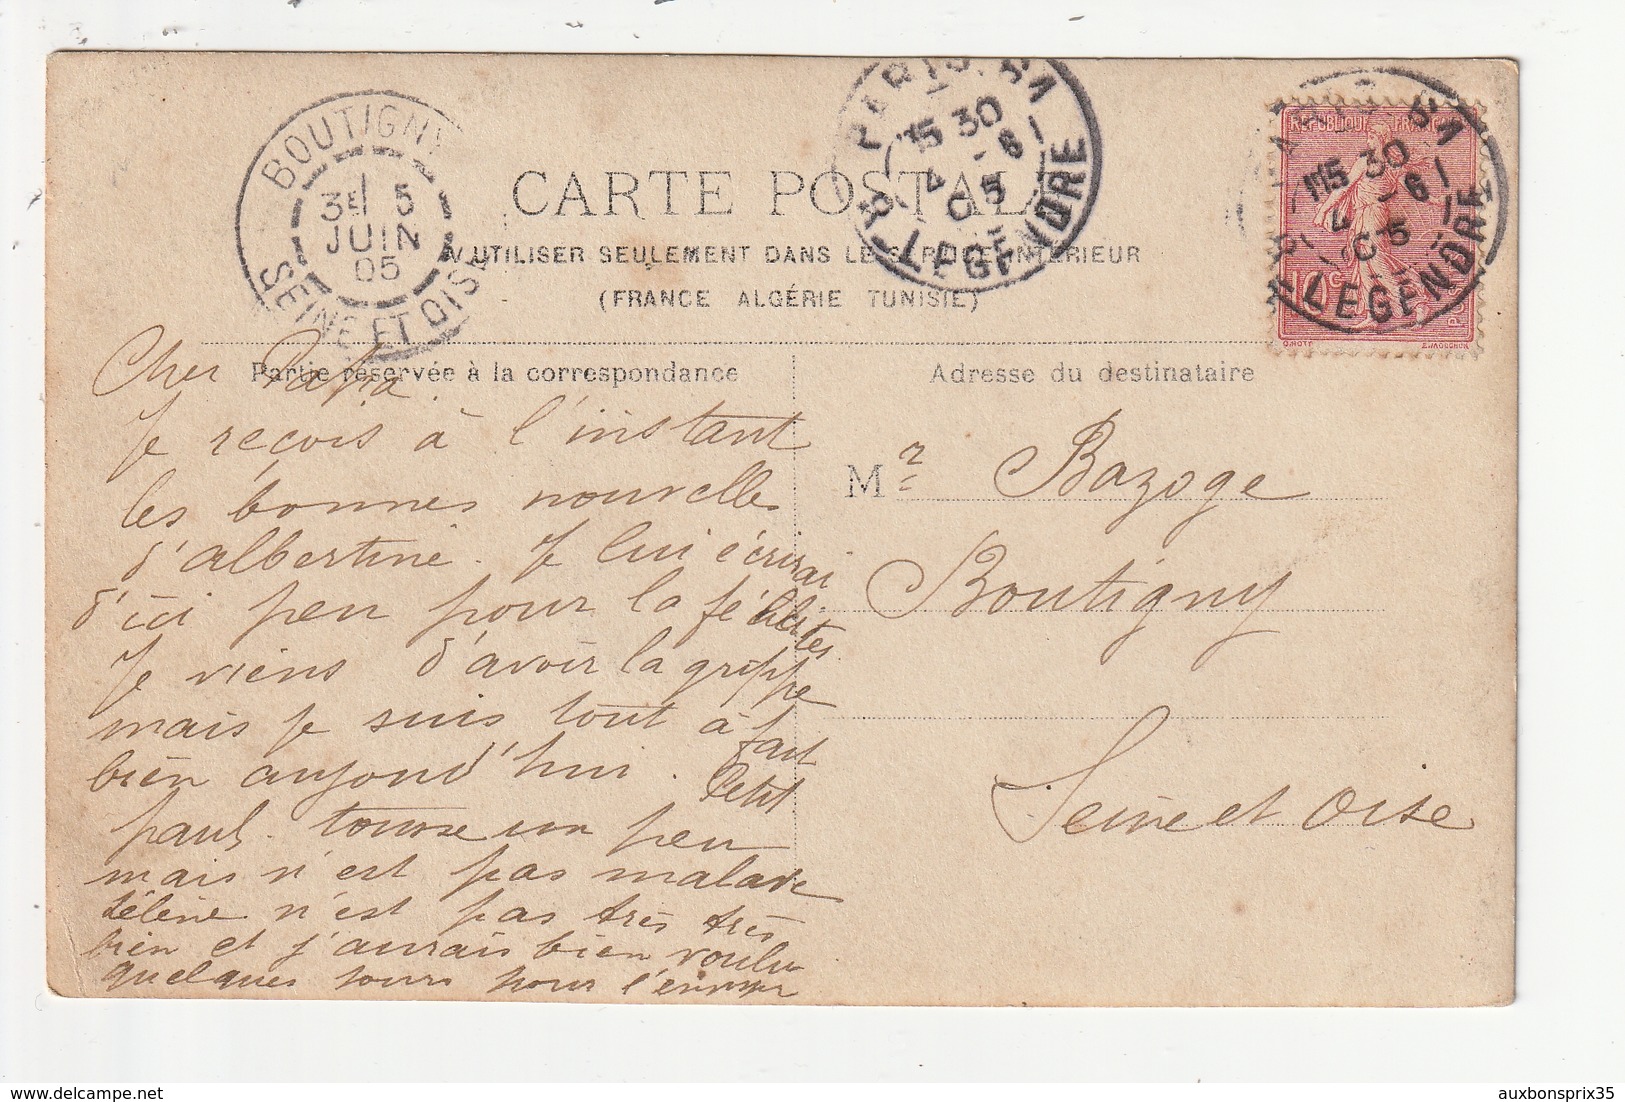 BOUTIGNY
3E 5
JUIN
05
SEINE ET OISE
PARIS
15 30
4 - 6
05
R. LEGENDRE
REPUBLIQUE FRANCAISE
15 30
4 - 6
05
R. LEGENDRE
10c
CARTE POSTALE
A UTILISER SEULEMENT DANS LE SERVICE INTÉRIEUR
(FRANCE ALGÉRIE TUNISIE)
Partie réservée à la correspondance
Adresse du destinataire
Cher Papa.
Je reçois à l'instant
les bonnes nouvelles
d'albertine. Je lui écrirai
d'ici peu pour la féliciter
Je viens d'avoir la grippe
mais je suis tout à fait
bien aujourd'hui. Petit
paul. tousse un peu
mais n'est pas malade
Hélène n'est pas très très
bien et j'aurais bien voulu
quelques jours pour l'envoyer
Mr Bazoge
Boutigny
Seine et Oise
delcampe.net
auxbonsprix35